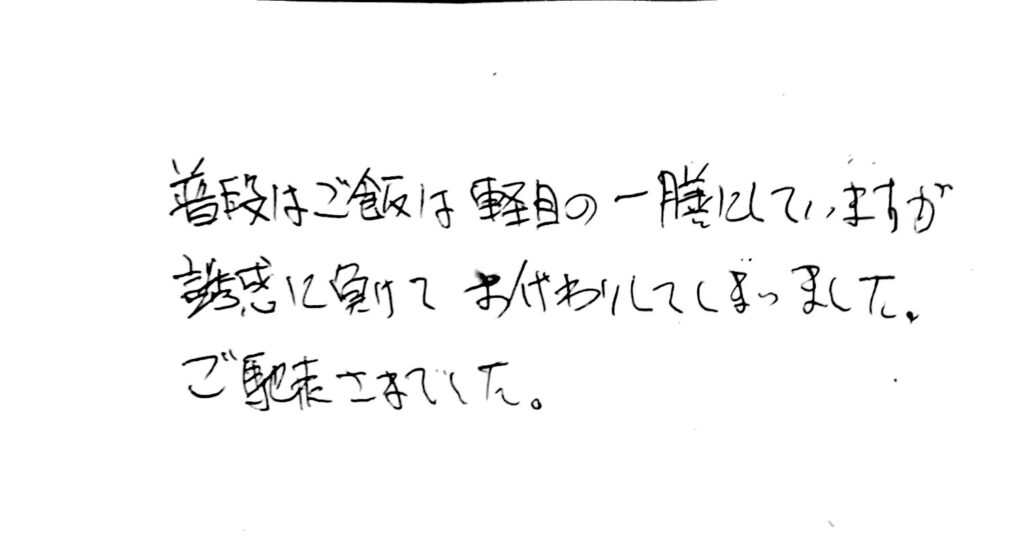 普段はご飯は軽目の一膳にしていますが
誘惑に負けておかわりしてしまいました。
ご馳走さまでした。